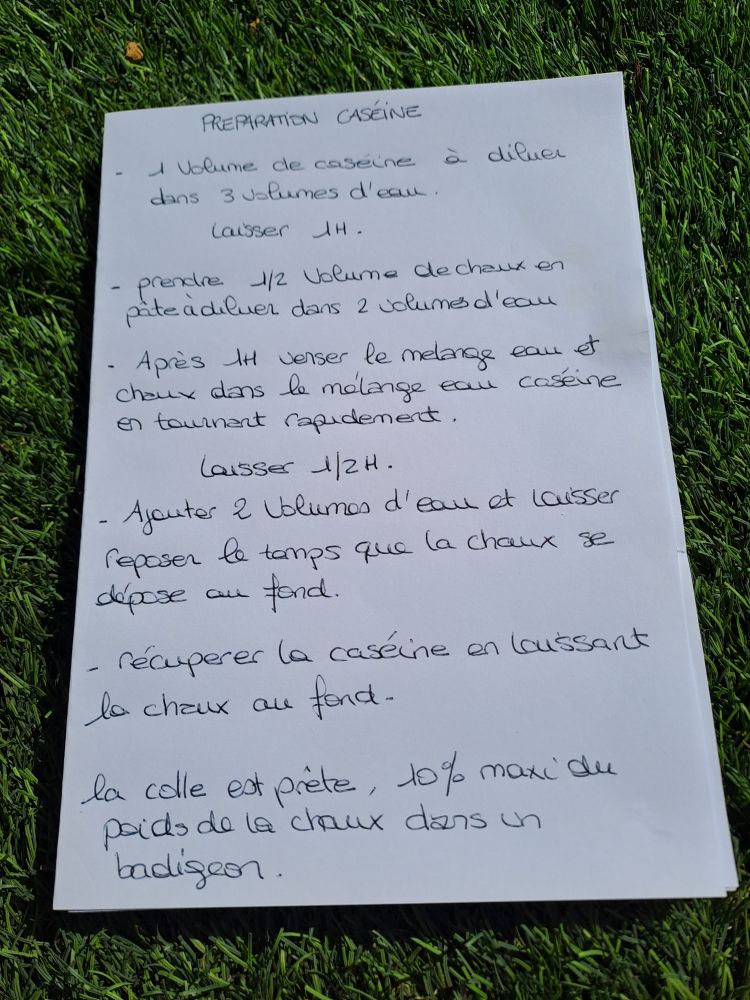 PREPARATION CASÉINE
- 1 Volume de caséine à diluer
dans 3 volumes d'eau.
Laisser 1H.
- prendre 1/2 Volume de chaux en
pâte à diluer dans 2 volumes d'eau
- Après 1H verser le melange eau et
chaux dans le mélange eau caséine
en tournant rapidement.
Laisser 1/2H.
- Ajouter 2 Volumes d'eau et laisser
reposer le temps que la chaux se
dépose au fond.
- récuperer la caséine en laissant
la chaux au fond-
la colle est prête, 10% maxi du
poids de la chaux dans un
badigeon.